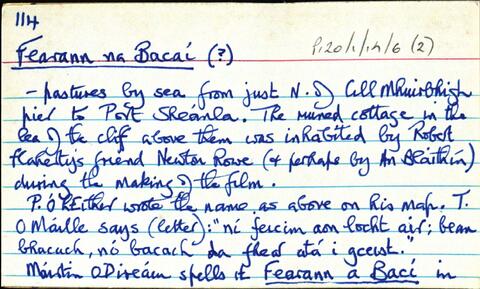 114
Fearann na Bacaí (?)
P120/1/14/6 (2)
- pastures by sea from just N. of Cill Mhuirbhigh
pier to Port Sheánla. The ruined cottage in the
lea of the cliff above them was inhabited by Robert
Flahertys friend Newton Rowe (& perhaps by An Bláithín)
during the making of the film.
P. Ó hEithir wrote the name as above on his map. T.
O Máille says (letter): "ní feicim aon locht air; bean
bhacach, nó bacach da fhear atá i gceist."
Máirtín O Direáin spells it Fearann a Bací in